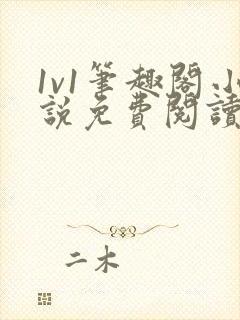 1v1筆趣閣小
說免費閱讀
二木